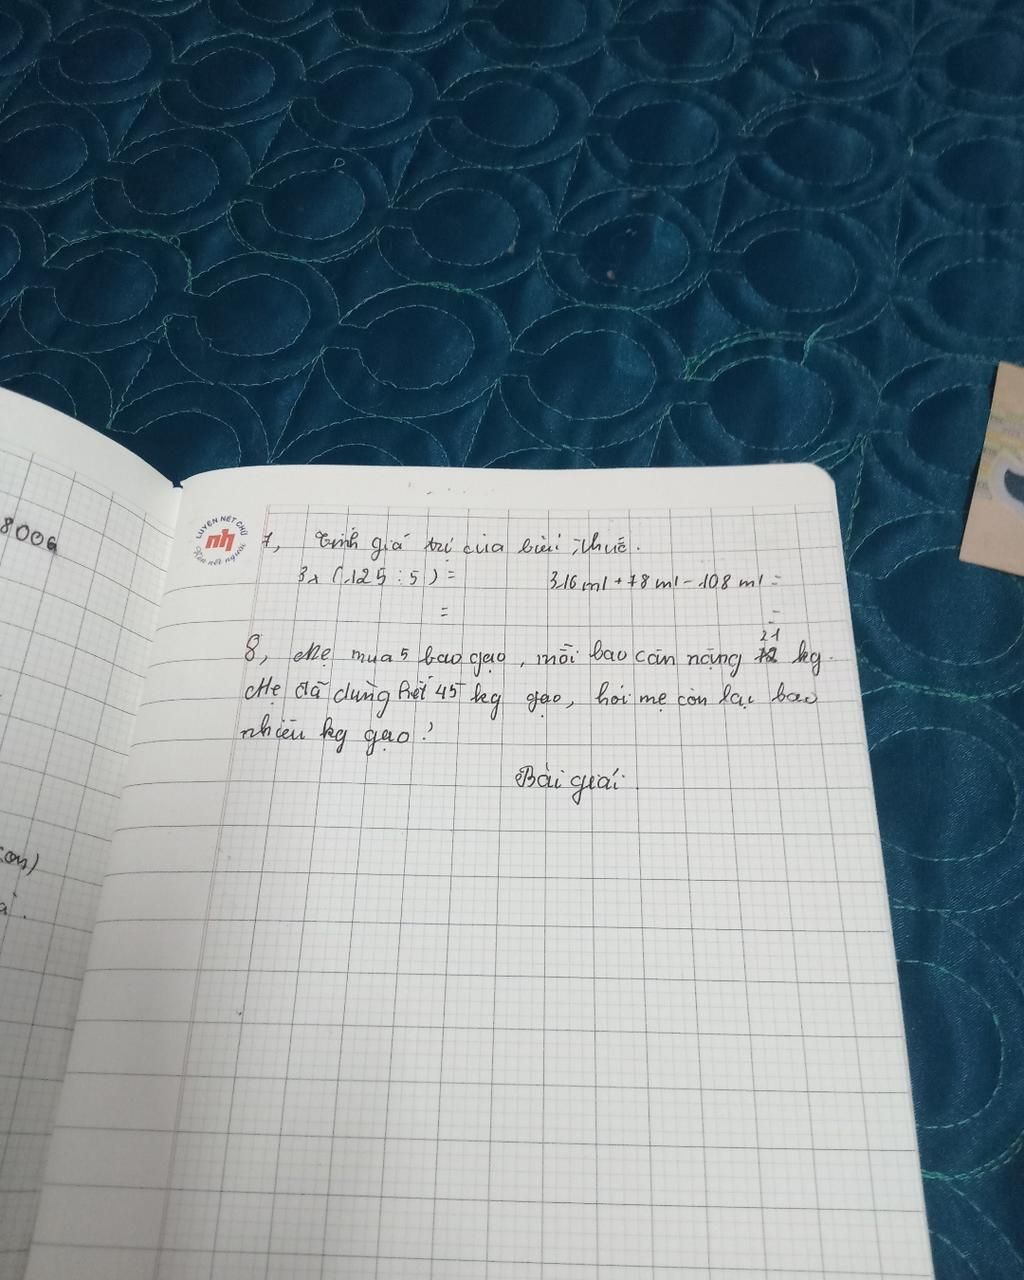 800g
LUYỆN NÉT CHỮ
nh
Rèn nết người
7, Tính giá trị của biểu thức.
3 x (125 : 5) =
316 ml + 78 ml - 108 ml =
=
=
21
8, Mẹ mua 5 bao gạo, mỗi bao cân nặng kg.
Mẹ đã dùng hết 45 kg gạo, hỏi mẹ còn lại bao
nhiêu kg gạo?
Bài giải
con)